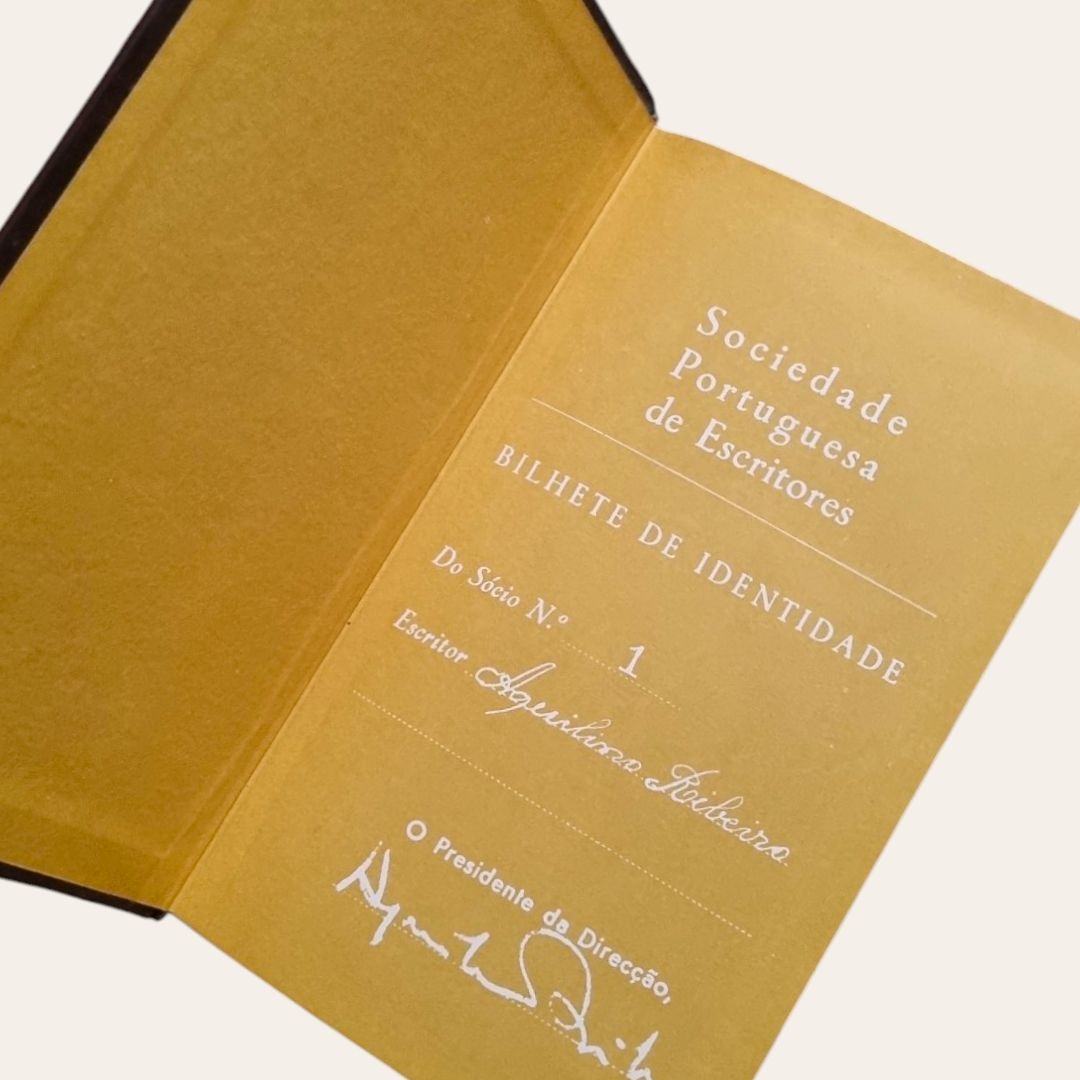 Sociedade
Portuguesa
de Escritores
BILHETE DE IDENTIDADE
Do Sócio N.º 1
Escritor Aquilino Ribeiro
O Presidente da Direcção,